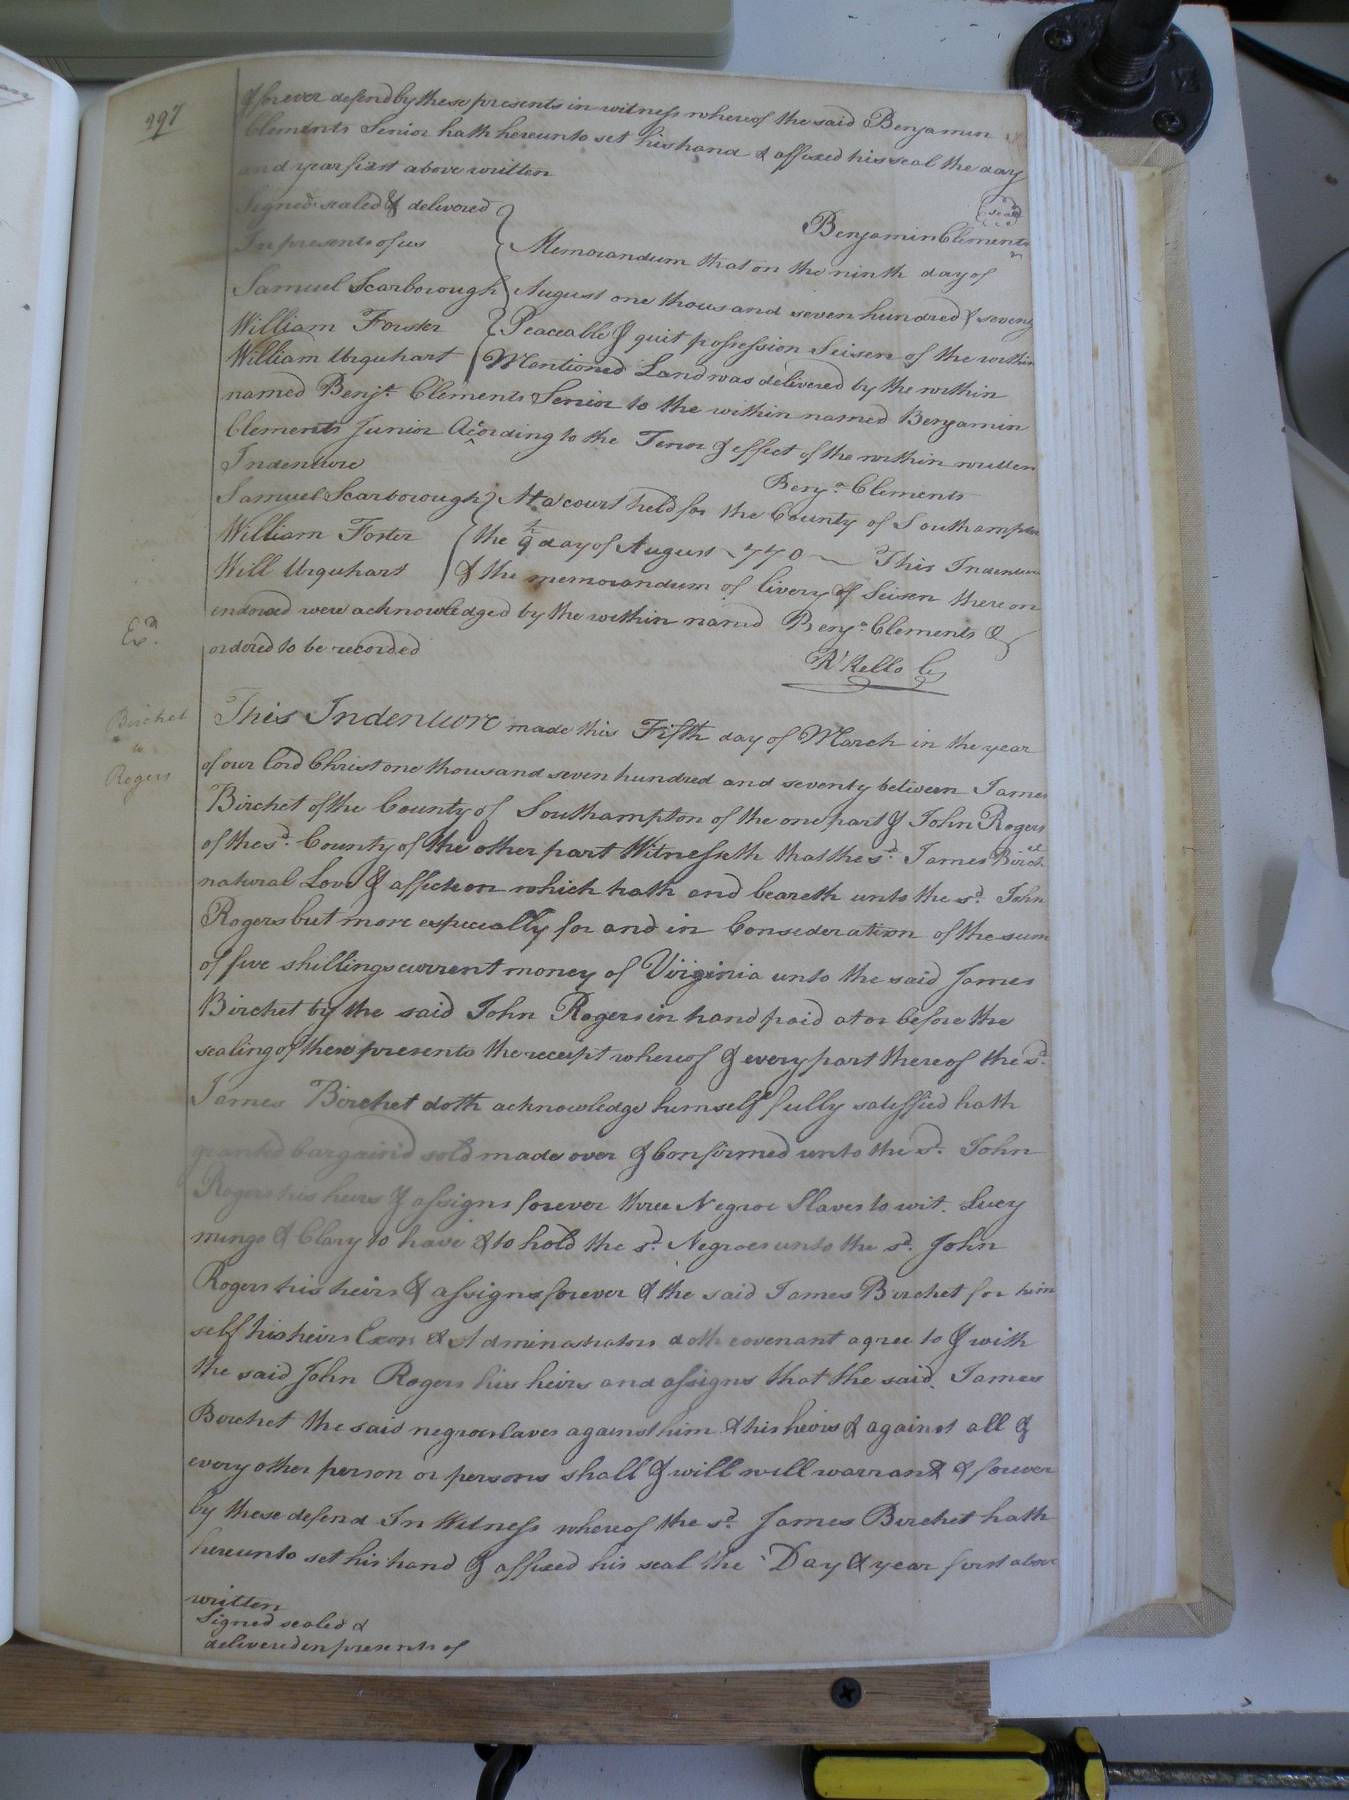 297
& forever defend by these presents in witness whereof the said Benjamin
Clements Senior hath hereunto set his hand & affixed his seal the day
and year first above written
Signed sealed & delivered
In presents of us
Samuel Scarborough
William Forster
William Urquhart
seal
Benjamin Clements
Memorandum that on the ninth day of
August one thousand seven hundred & seventy
Peaceable & quit possession Seisen of the within
Mentioned Land was delivered by the within
named Benjn. Clements Senior to the within named Benjamin
Clements Junior According to the Tenor & effect of the within written
Indenture
Benja. Clements
Samuel Scarborough
William Forster
Will Urquhart
At a court held for the County of Southampton
the 9th day of August 1770 This Indenture
& the memorandum of livery of Seisen thereon
endorsed were acknowledged by the within named Benja. Clements &
ordered to be recorded
Exd.
R' Kello C
Birchet
to
Rogers
This Indenture made this Fifth day of March in the year
of our Lord Christ one thousand seven hundred and seventy between James
Birchet of the County of Southampton of the one part & John Rogers
of the sd. County of the other part Witnesseth that the sd. James Birchet
natural Love & affection which hath and beareth unto the sd. John
Rogers but more especially for and in Consideration of the sum
of five shillings current money of Virginia unto the said James
Birchet by the said John Rogers in hand paid at or before the
sealing of these presents the receipt whereof & every part thereof the sd.
James Birchet doth acknowledge himself fully satisfied hath
granted bargain'd sold made over & Confirmed unto the sd. John
Rogers his heirs & assigns forever three Negroe Slaves to wit. Lucy
mingo & Clary to have & to hold the sd. Negroes unto the sd. John
Rogers his heirs & assigns forever & the said James Birchet for him
self his heirs Exors & Adminastrators doth covenant agree to & with
the said John Rogers his heirs and assigns that the said James
Birchet the said negroe slaves against him & his heirs & against all &
every other person or persons shall & will will warrant & forever
by these defend In Witness whereof the sd. James Birchet hath
hereunto set his hand & affixed his seal the Day & year first above
written
Signed sealed &
delivered in presents of